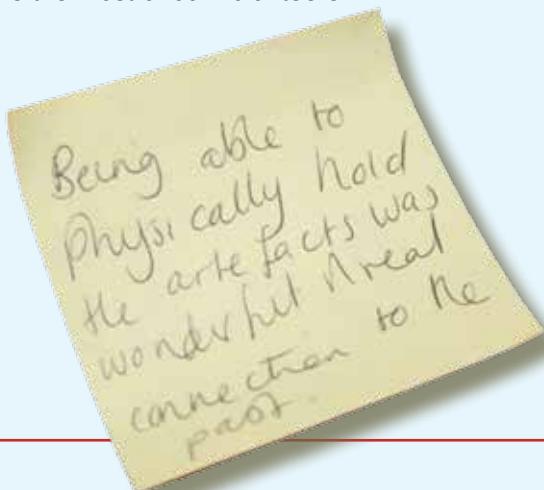 Being able to
physically hold
the artefacts was
wonderful & real
connection to the
past.